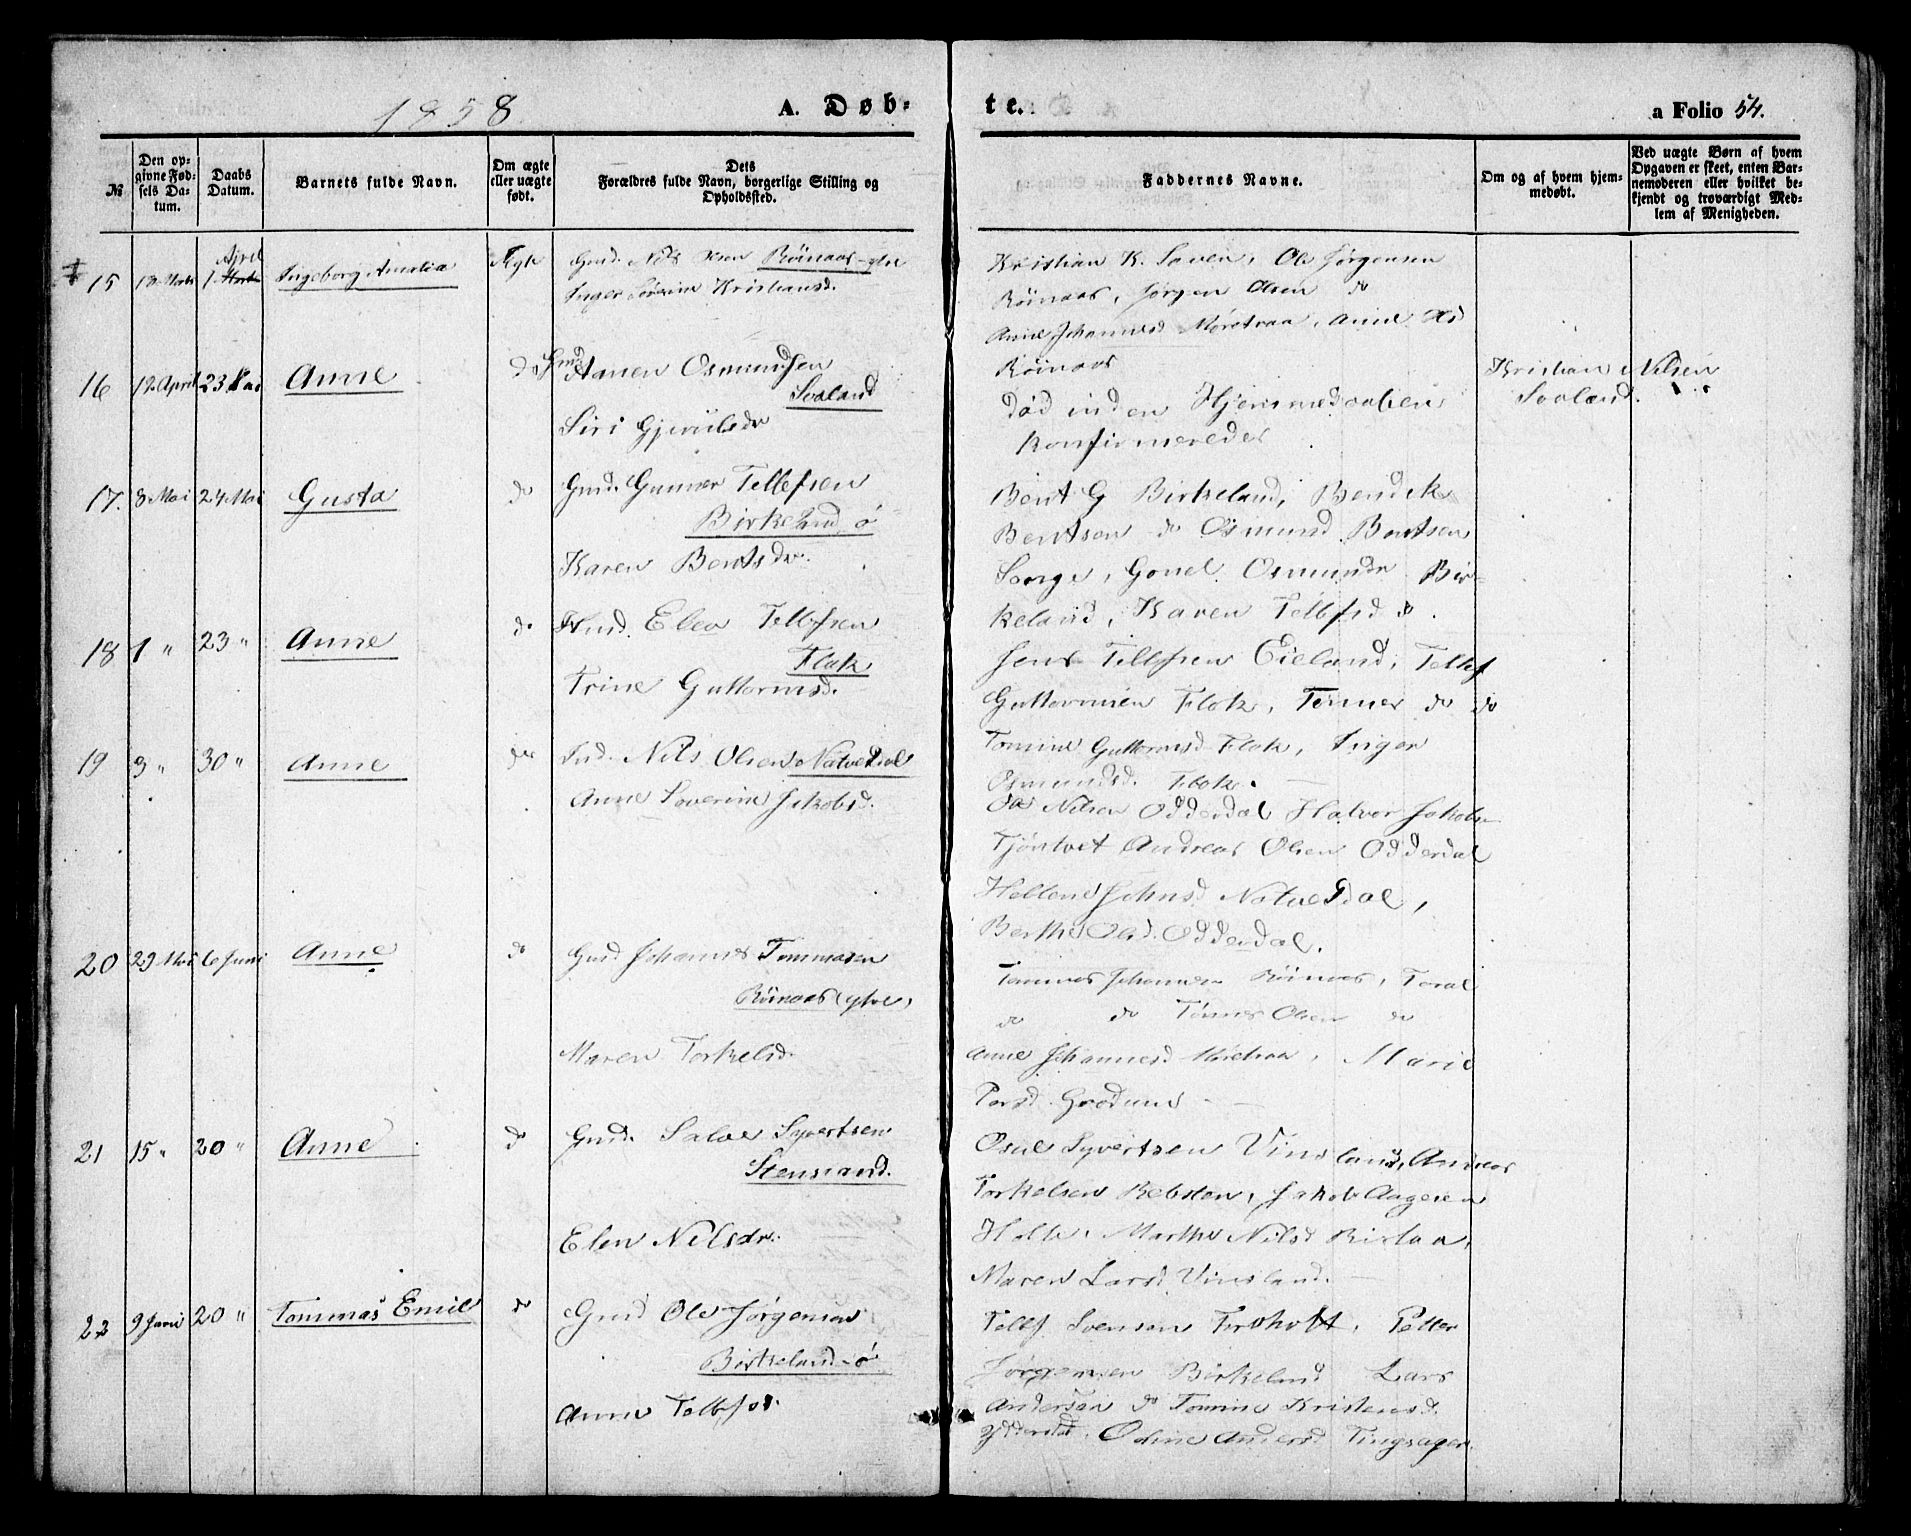 1858
A. Døb-
te.
a Folio 54.
№
Den opgivne Fødsels Datum.
Daabs Datum.
Barnets fulde Navn.
Om ægte eller uægte født.
Dets Forældres fulde Navn, borgerlige Stilling og Opholdssted.
Faddernes Navne.
Om og af hvem hjemmedøbt.
Ved uægte Børn af hvem Opgaven er skeet, enten Barnemoderen eller hvilket bekjendt og troværdigt Medlem af Menigheden.
15 18 Marts 1 April Ingeborg Amalia Ægte Gmd. Nils Røinaas
Inger Kristiansd.
Kristian K. Ole Jørgensen
Røinaas, Jørgen Olsen do
Anne Johannesd Anne
Røinaas
16 12 April 23 Mai Anne do Gmd Osmundsen
Sooland
Siri
død inden Hjemmedaaben
Konfirmeredes
Kristian Nilsen
Sooland.
17. 8 Mai 24 Mai Gusta do Gmd. Gunner Tellefsen
Birkeland ø
Karen Bentsdr.
Bent G Birkeland, Bendik
Bentsen do Osmund Bentsen
Gonel Osmundr Bir-
keland, Karen Tellefsd do.
18 1 " 23 " Anne do Elev Tellefsen
Flak
Trine Guttormsd.
Jens Tellefsen Eieland, Tellef
Guttormsen Flak, Tønnes do do
Tomine Guttormsd Flak, Inger
Osmundsd. Flak.
19 3 " 30 " Anne do Ind. Nils Olsen Natvedal
Anne Soverine Jakobsd.
Ole Nilsen Odderdal Halvor Jakobsen
Tjøntvet Andreas Olsen Odderdal
Hellene Johnsd Natvedal,
Berthe Olsd. Odderdal.
20 29 Mai 6 Juni Anne do Gmd Johannes Tommasen
Røinaas
Maren Torkelsd.
Tommas Johannesen Røinaas, Toral
do do Tønnes Olsen do
Anne Johannesd Marie
Persd.
21 15 " 20 " Anne do Gmd. Salve Syvertsen
Stensland.
Elen Nilsdr.
Osul Syvertsen Vinsland, Andreas
Torkelsen Rebsten, Jakob Aagesen
Holte, Marthe Nilsd
Maren Larsd Vinsland.
22 9 Juni 20 " Tommas Emil do Gmd Ole Jørgensen
Birkeland ø
Anne Tellefsd.
Tellef Svensen Peder
Jørgensen Birkeland Lars
Andersen do Tomine Kristensd.
Odine Andersd Tingsager.